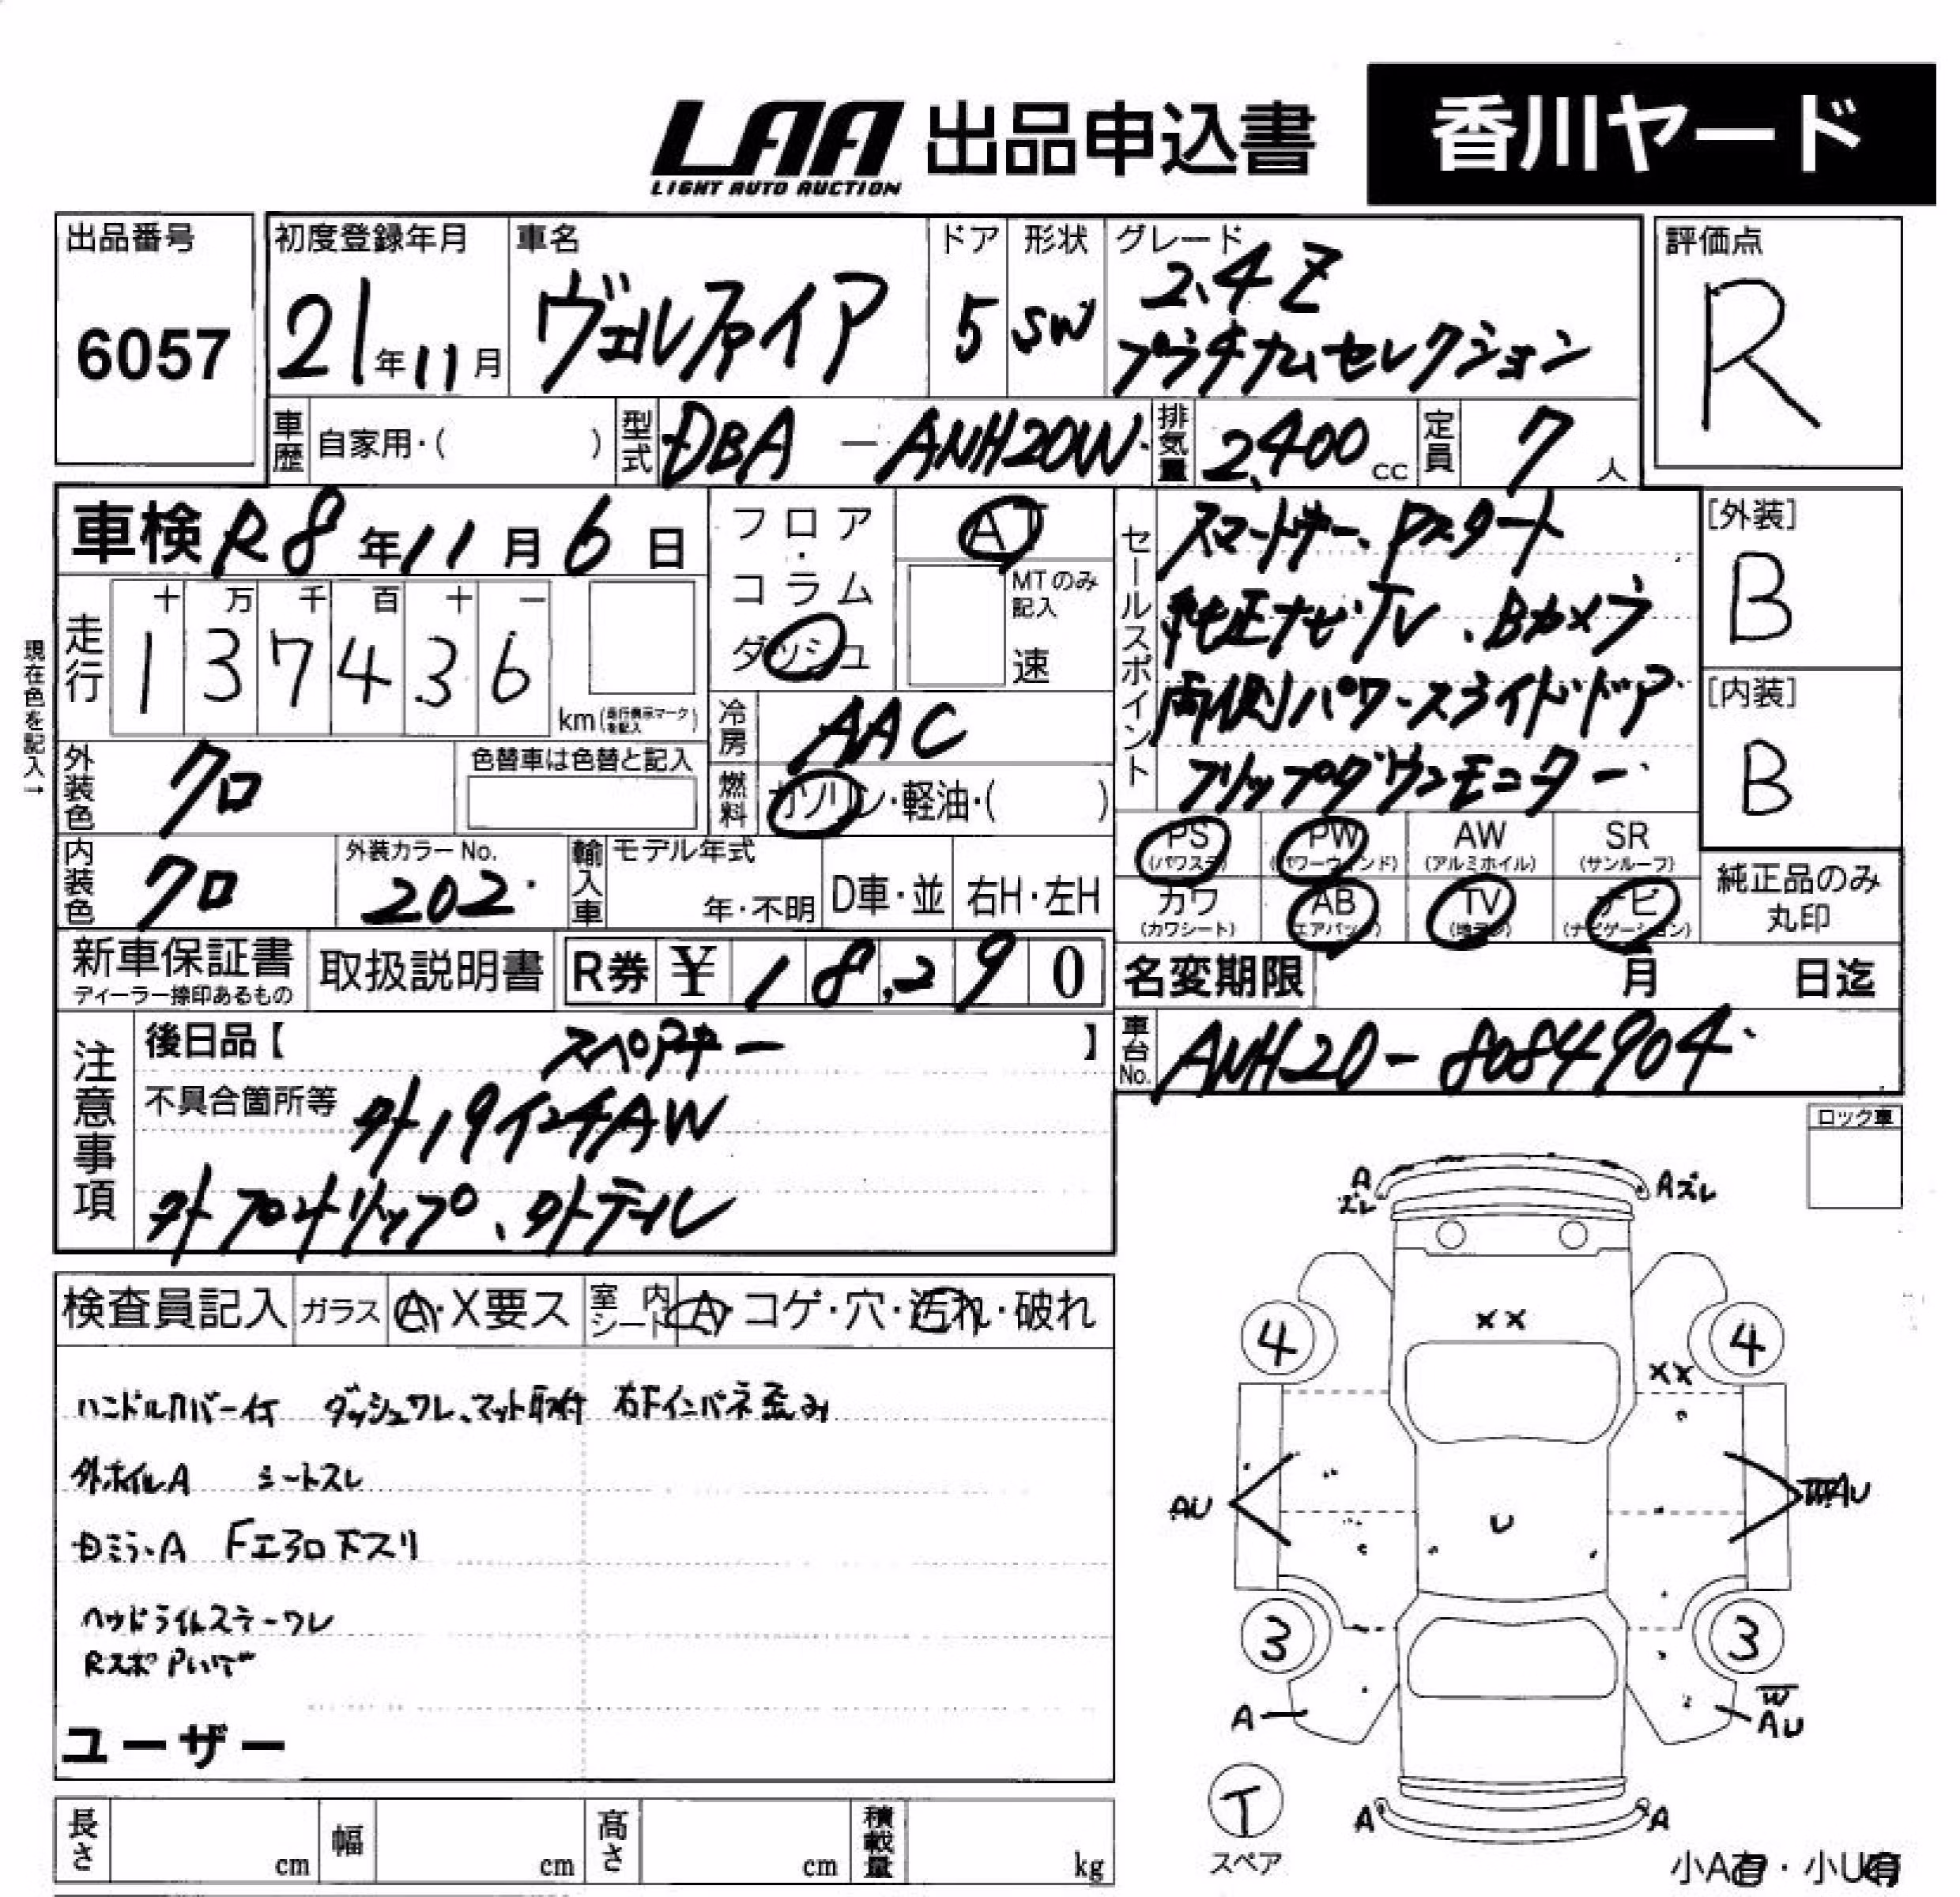 LAA 出品申込書 香川ヤード
LIGHT AUTO AUCTION
出品番号 初度登録年月 車名 ドア 形状 グレード 評価点
6057 21年11月 ヴェルファイア 5 SW 2.4Z R
プラチナムセレクション
車歴 自家用・( ) 型式 DBA-ANH20W 排気量 2,400cc 定員 7人
車検 R8年11月6日 フロア・コラム ダッシュ AT
MTのみ記入 速
現在色を記入→
走行 十 万 千 百 十 一
1 3 7 4 3 6 km(走行表示マークを記入)
冷房 AAC
燃料 ガソリン・軽油・( )
セールスポイント
スマートキー、Pスタート
純正ナビ・TV、Bカメラ
両側パワースライドドア
フリップダウンモニター
[外装]
B
[内装]
B
外装色 クロ 色替車は色替と記入
内装色 クロ 外装カラーNo. 202 輸入車 モデル年式 年・不明 D車・並 右H・左H
PS PW AW SR
(パワステ) (パワーウィンド) (アルミホイル) (サンルーフ)
カワ AB TV ナビ
(カワシート) (エアバック) (地デジ) (ナビゲーション)
純正品のみ
丸印
新車保証書 取扱説明書 R券 ¥18,290
ディーラー捺印あるもの
名変期限 月 日迄
車台No. ANH20-8084904
注意事項
後日品【 スペアキー 】
不具合箇所等 外19インチAW
外フロントリップ、外テール
ロック車
検査員記入 ガラス A・X要ス 室内シート A・コゲ・穴・汚れ・破れ
ハンドルカバー付 ダッシュワレ、マット取付 右Fインパネ歪み
外ホイルA シートスレ
ミラーA Fエアロ下スリ
ヘッドライトステーワレ
Rスポ
ユーザー
長さ cm 幅 cm 高さ cm 積載量 kg
A ズレ
A ズレ
XX
4 4
XX
AU
U
WAU
3 3
A
W
AU
T
スペア
A A
小A有・小U有